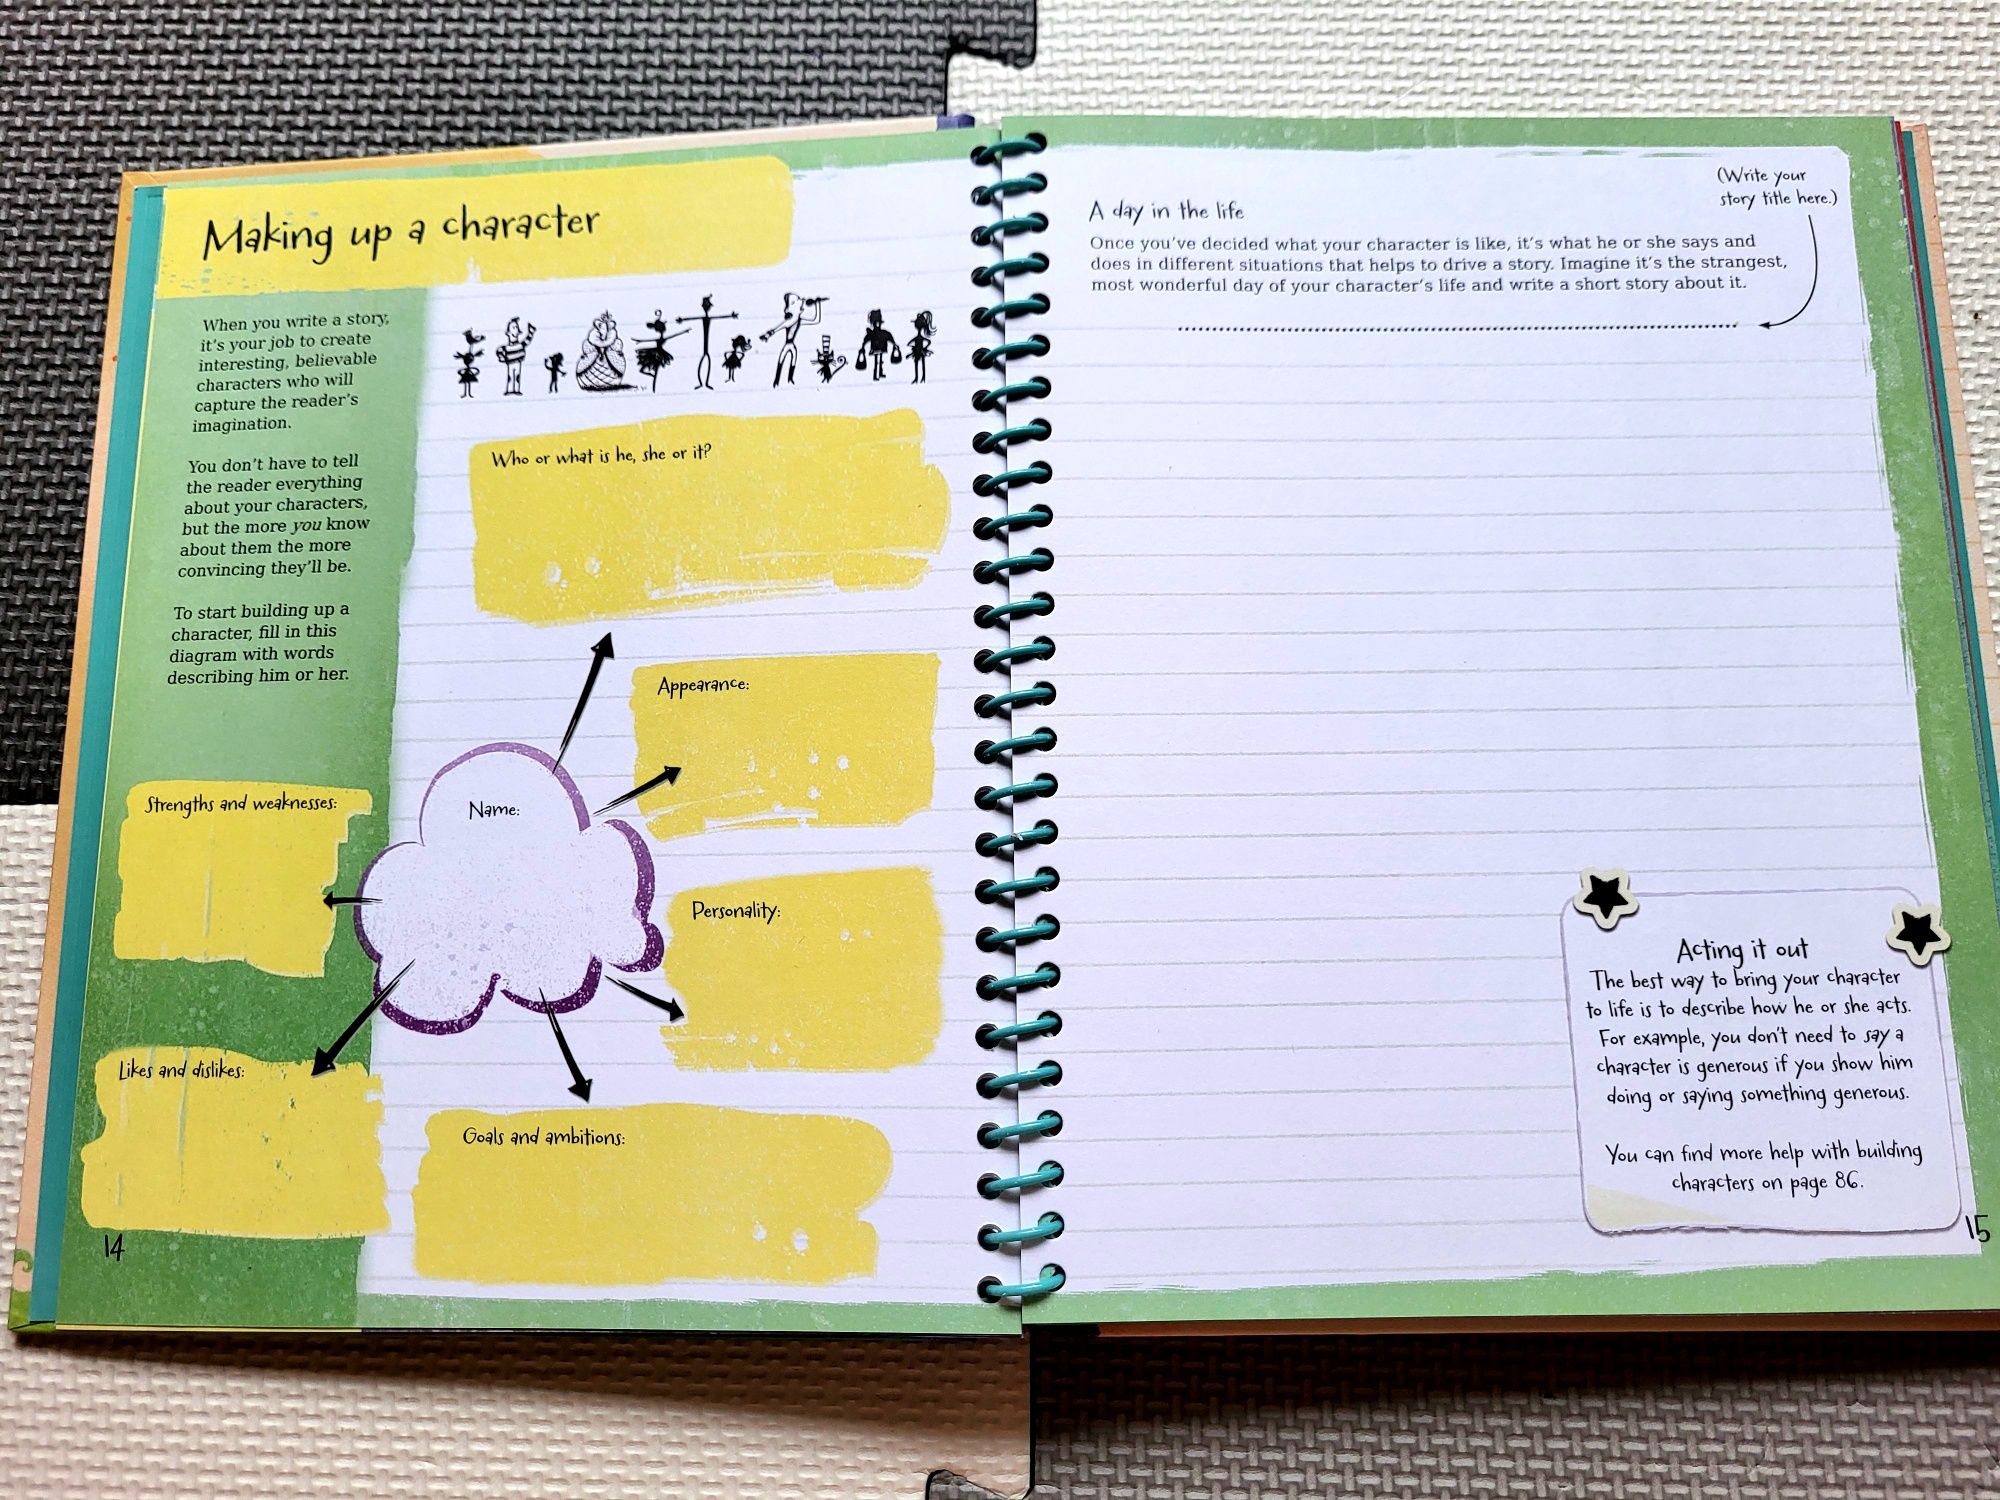 Making up a character
When you write a story,
it's your job to create
interesting, believable
characters who will
capture the reader's
imagination.
You don't have to tell
the reader everything
about your characters,
but the more you know
about them the more
convincing they'll be.
To start building up a
character, fill in this
diagram with words
describing him or her.
Who or what is he, she or it?
Appearance:
Name:
Strengths and weaknesses:
Personality:
Likes and dislikes:
Goals and ambitions:
14
(Write your
story title here.)
A day in the life
Once you've decided what your character is like, it's what he or she says and
does in different situations that helps to drive a story. Imagine it's the strangest,
most wonderful day of your character's life and write a short story about it.
Acting it out
The best way to bring your character
to life is to describe how he or she acts.
For example, you don't need to say a
character is generous if you show him
doing or saying something generous.
You can find more help with building
characters on page 86.
15